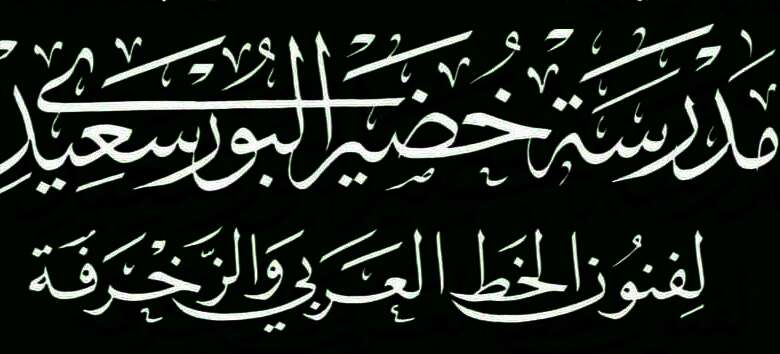 مدرسة خضير البورسعيدي
لفنون الخط العربي والزخرفة